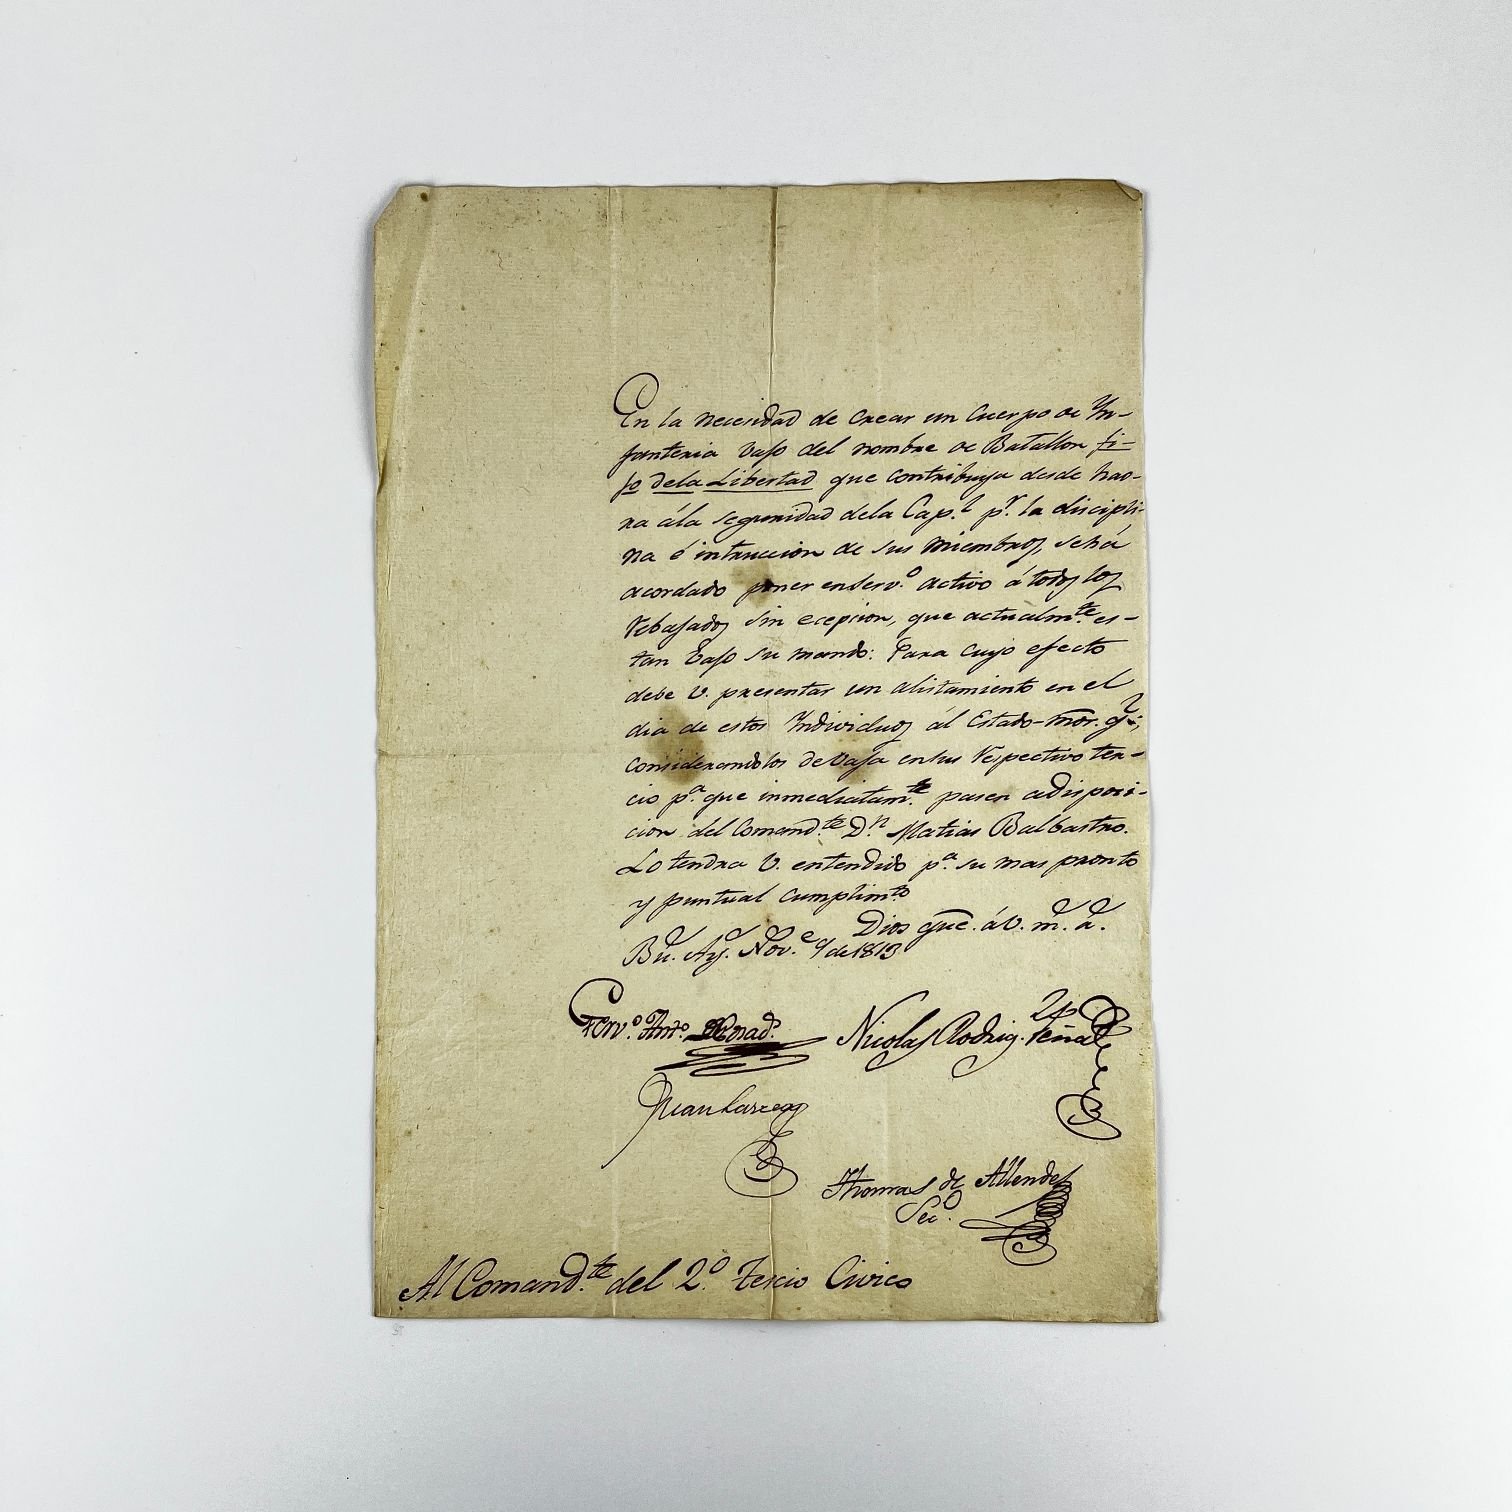 En la necesidad de crear un Cuerpo de Yn-
fanteria vajo del nombre de Batallon fi-
jo dela Libertad que contribuya desde hao-
ra ála seguridad dela Cap.l p.r la discipli-
na é intruccion de sus miembros, se há
acordado poner en serv.o activo á todos los
rebajados sin ecepcion, que actualm.te es-
tan bajo su mando: Para cuyo efecto
debe V. presentar un alistamiento en el
dia de estos Individuos ál Estado-mor. g.l,
considerandolos de vaja en su respectivo ter-
cio p.a que inmediatam.te pasen a disposi-
cion del Comand.te D.n Matias Balbastro.
Lo tendra V. entendido p.a su mas pronto
y puntual cumplim.to
Dios gue. á V. m.s a.s
Bu.s Ay.s Nov.e 9 de 1813
Gerv.o Ant.o Posad.s
Nicolas Rodrig. Peña
Juan Larrea
Thomas de Allende
Sec.o
Al Comand.te del 2.o tercio Civico